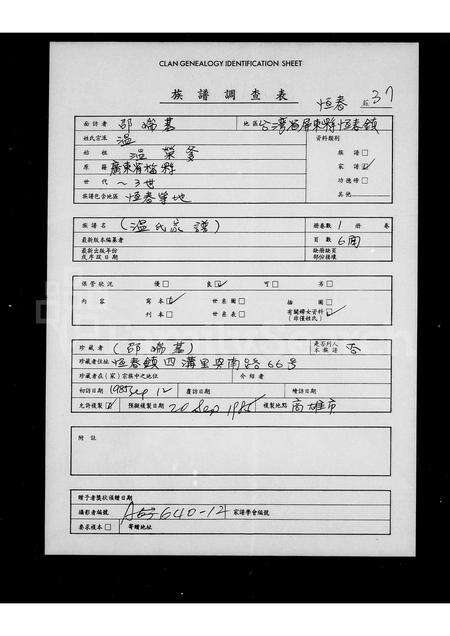 CLAN GENEALOGY IDENTIFICATION SHEET
族譜調查表
恆春 37
面訪者 邵瑞甚 地區 台灣省屏東縣恆春鎮
姓氏宗派 温 資料類別
始祖 温榮爹 族譜
原籍 廣東省 縣 家譜
世代 ~3世 功德榜
族譜包含地區 恆春等地 其他
族譜名 (温氏家譜) 冊卷數 1 冊 卷
最新版本編纂者 頁數 6面
最新出版年份及序跋日期 缺冊缺頁部份後補
保管狀況 優 良 可 劣
內容 寫本 世系圖 插圖
刊本 世系表 有關婦女資料(非僅姓氏)
珍藏者 (邵瑞甚) 是否列入本族譜 否
珍藏者住址 恆春鎮四溝里安南路66号
珍藏者在(家)宗族中之地位 介紹者
初訪日期 1985 Sep 12 覆訪日期 續訪日期
允許複製 預擬複製日期 20 Sep 1985 複製地點 高雄市
附註
贈予者獎狀後贈日期
攝影者編號 640-12 家譜學會編號
要求複本 寄贈地址